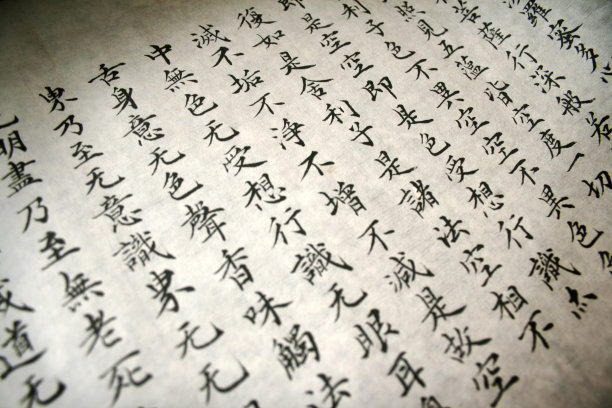 羅蜜多
菩薩行深般若
照見五蘊皆空度一切
利子色不異空空不異色
即是空空即是色受想行識
復如是舍利子是諸法空相不
滅不垢不淨不增不減是故空
中無色无受想行識无眼耳
舌身意无色聲香味觸法
界乃至无意識界无无
明盡乃至無老死
道无